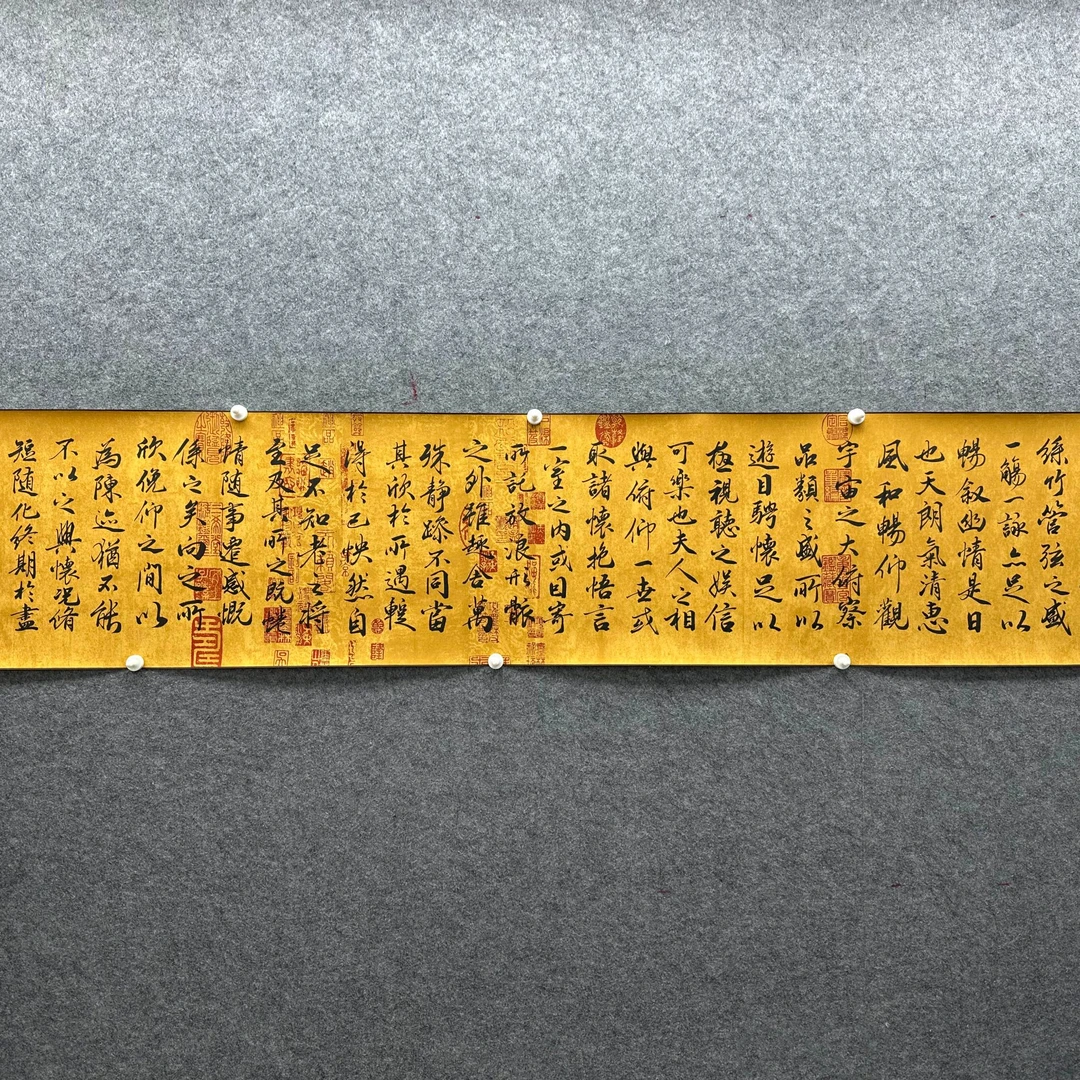 絲竹管弦之盛
一觴一詠亦足以
暢叙幽情是日
也天朗氣清惠
風和暢仰觀
宇宙之大俯察
品類之盛所以
遊目騁懷足以
極視聽之娛信
可樂也夫人之相
與俯仰一世或
取諸懷抱悟言
一室之内或因寄
所託放浪形骸
之外雖趣舍萬
殊静躁不同當
其欣於所遇暫
得於己怏然自
足不知老之將
至及其所之既惓
情隨事遷感慨
係之矣向之所
欣俛仰之間以
為陳迹猶不能
不以之興懷況脩
短隨化終期於盡